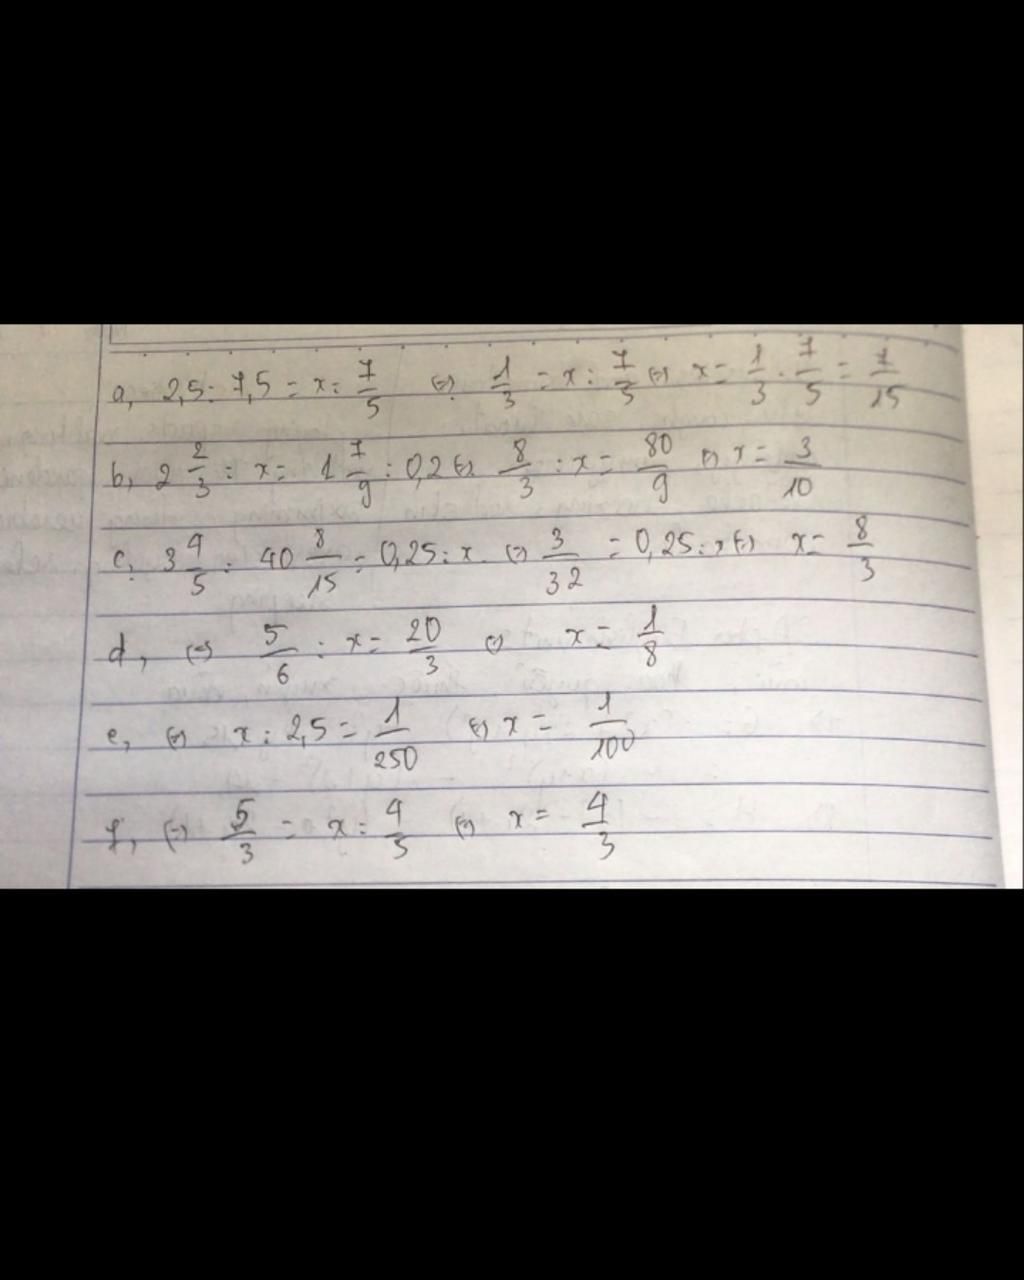 a, 2,5 : 7,5 = x : 7/5 (=) 1/3 = x : 7/5 (=) x = 1/3 . 7/5 = 7/15
b, 2 2/3 : x = 1 7/9 : 0,2 (=) 8/3 : x = 80/9 (=) x = 3/10
c, 3 4/5 : 40 8/15 = 0,25 : x (=) 3/32 = 0,25 : x (=) x = 8/3
d, (=) 5/6 : x = 20/3 (=) x = 1/8
e, (=) x : 2,5 = 1/250 (=) x = 1/100
f, (=) 5/3 = x : 4/5 (=) x = 4/3